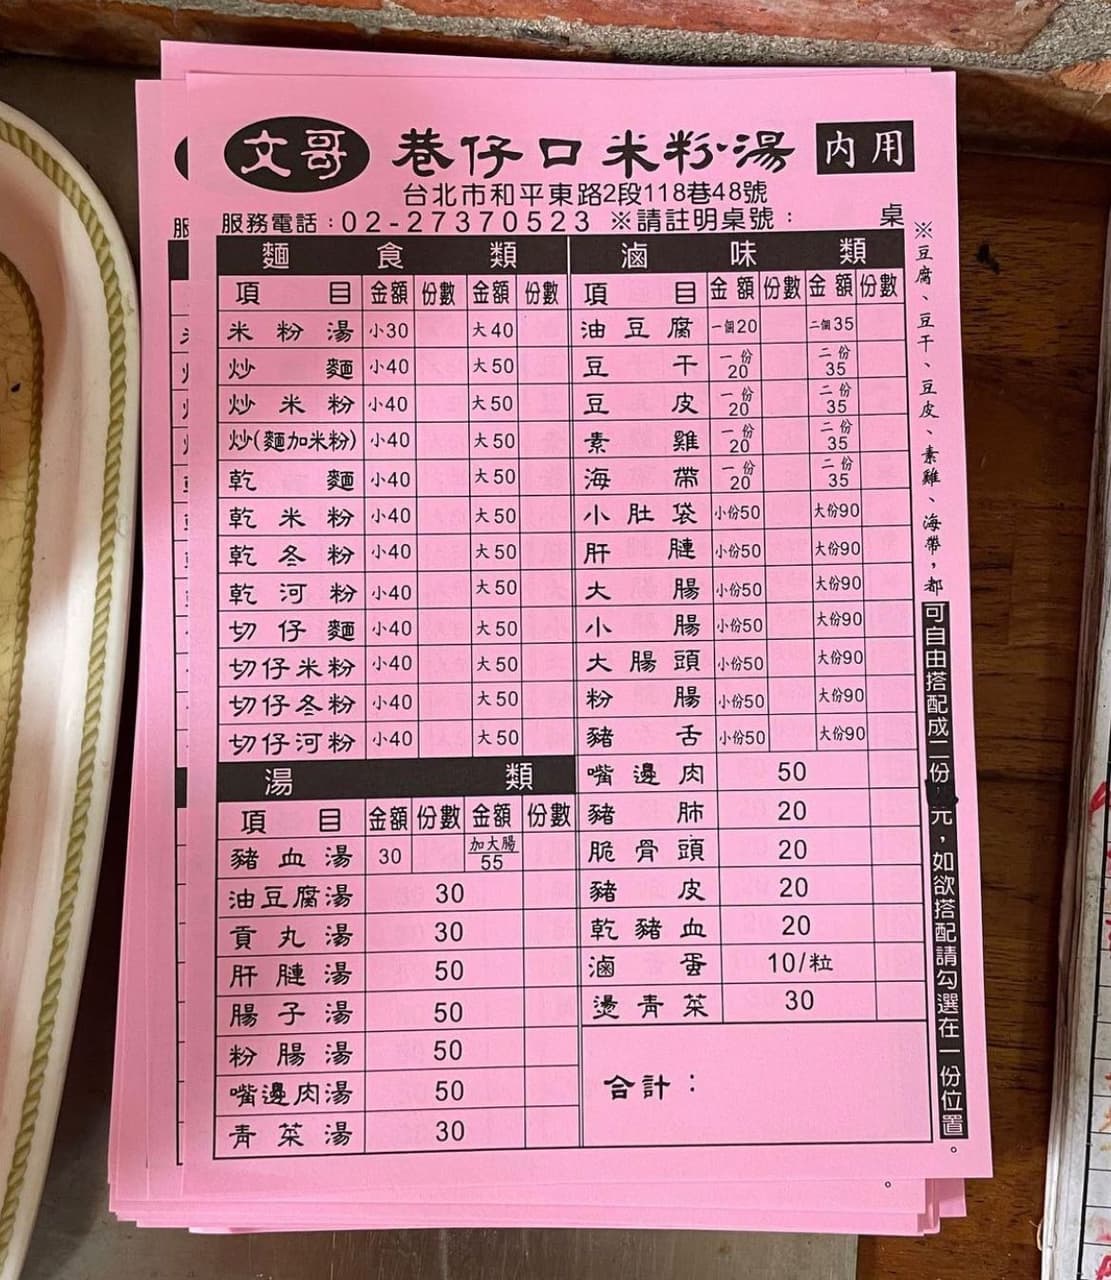 文哥 巷仔口米粉湯 內用
台北市和平東路2段118巷48號
服務電話：02-27370523 ※請註明桌號： 桌
麵食類
項目 金額 份數 金額 份數
米粉湯 小30 大40
炒麵 小40 大50
炒米粉 小40 大50
炒(麵加米粉) 小40 大50
乾麵 小40 大50
乾米粉 小40 大50
乾冬粉 小40 大50
乾河粉 小40 大50
切仔麵 小40 大50
切仔米粉 小40 大50
切仔冬粉 小40 大50
切仔河粉 小40 大50
湯類
項目 金額 份數 金額 份數
豬血湯 30 加大腸 55
油豆腐湯 30
貢丸湯 30
肝腱湯 50
腸子湯 50
粉腸湯 50
嘴邊肉湯 50
青菜湯 30
滷味類
項目 金額 份數 金額 份數
油豆腐 一個20 二個35
豆干 一份20 二份35
豆皮 一份20 二份35
素雞 一份20 二份35
海帶 一份20 二份35
小肚袋 小份50 大份90
肝腱 小份50 大份90
大腸 小份50 大份90
小腸 小份50 大份90
大腸頭 小份50 大份90
粉腸 小份50 大份90
豬舌 小份50 大份90
嘴邊肉 50
豬肺 20
脆骨頭 20
豬皮 20
乾豬血 20
滷蛋 10/粒
燙青菜 30
合計：
※豆腐、豆干、豆皮、素雞、海帶，都可自由搭配成二份 元，如欲搭配請勾選在一份位置。